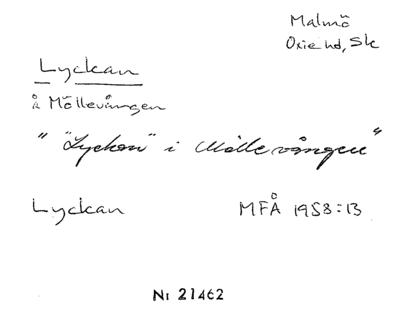 Malmö
Oxie hd, Sk
Lyckan
å Möllevången
" "Lyckan" i Möllevången"
Lyckan MFÅ 1958:13
Nr 21462